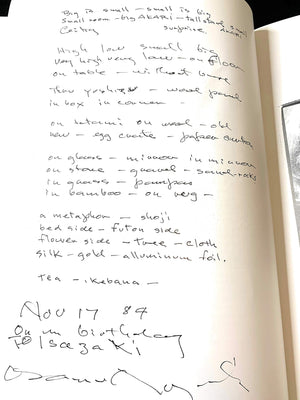 Big is small – small is big
Small room – big AKARI – tall small
Ceiling AKARI
High low small big
very high very low – on floor
on table – without
wood panel
in box in corner –
on tatami on wood – old
new – egg crate –
on glass – mirror in mirror
on stone – gravel – sand – rocks
in grass –
in bamboo – on
a metaphor – shoji
bed side – futon side
flower side – tree – cloth
silk – gold – alluminum foil.
tea – ikebana –
Nov 17 84
On my birthday
To Isozaki